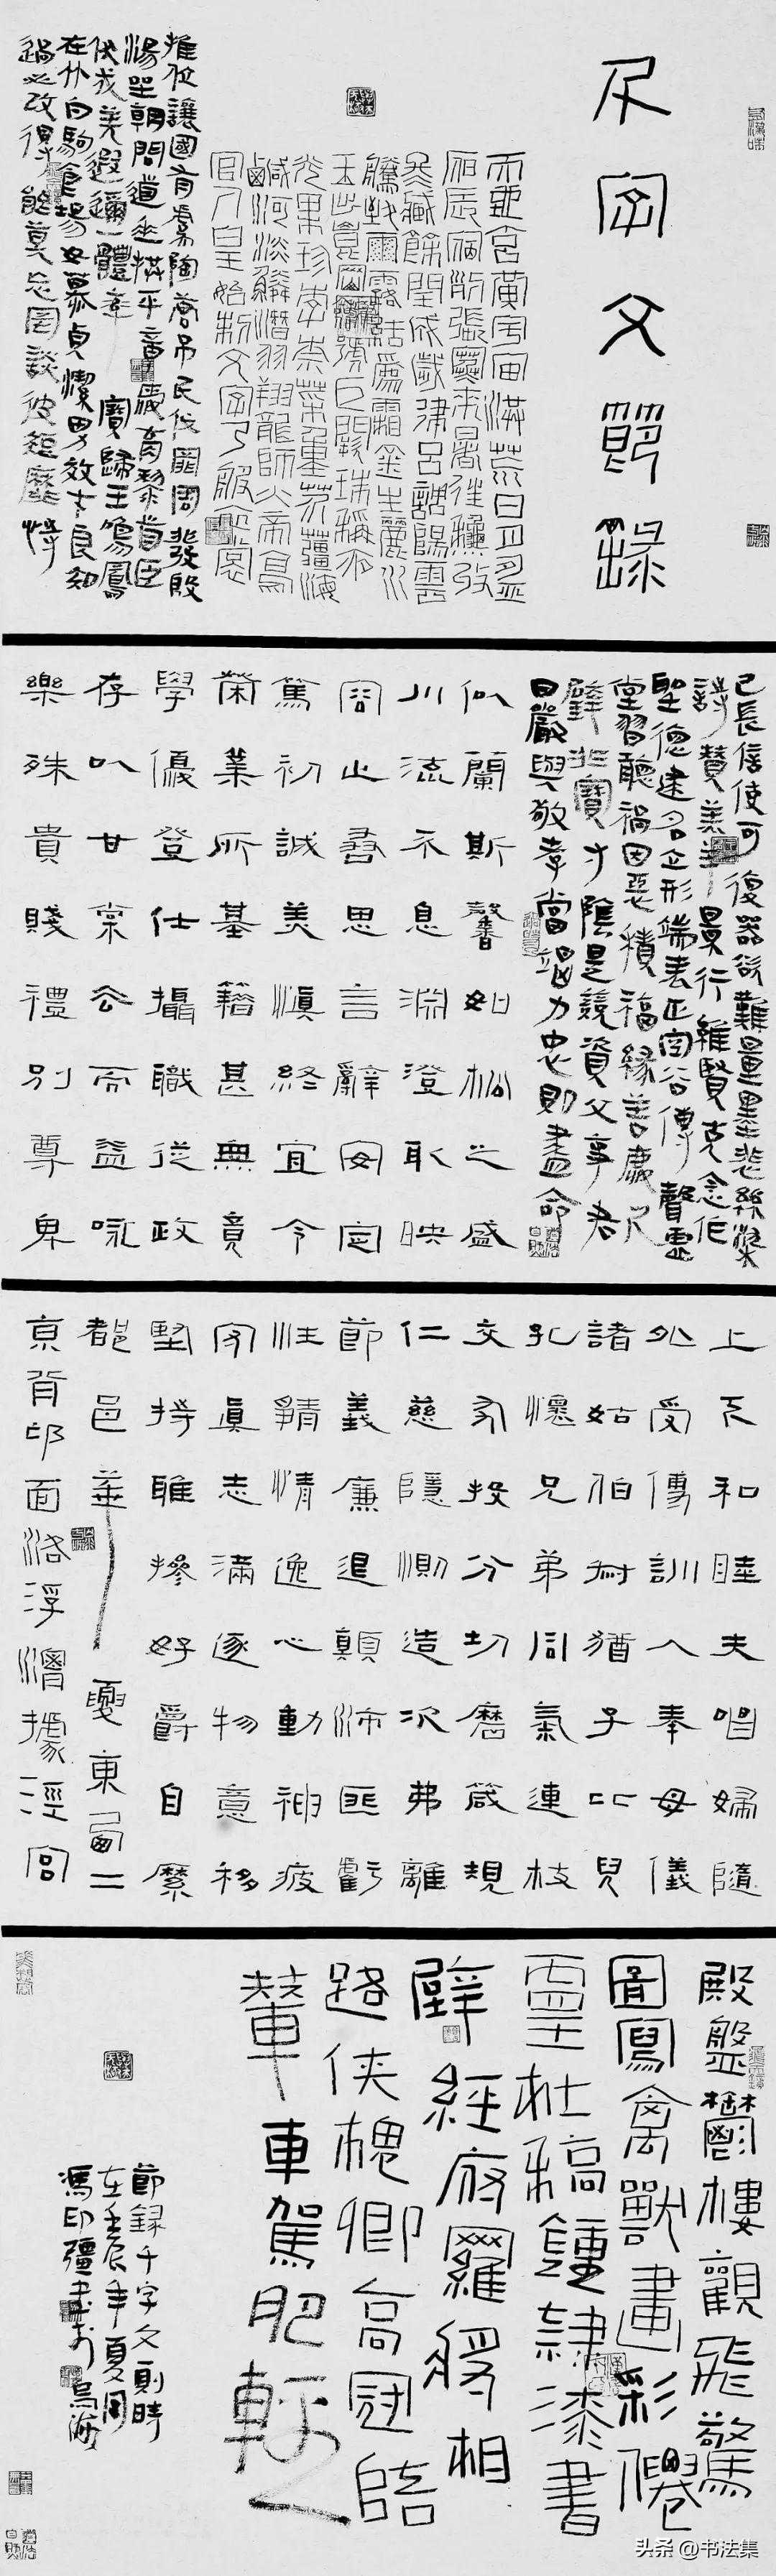 千字文節錄
天地玄黃宇宙洪荒日月盈
昃辰宿列張寒來暑往穐收
冬藏餘閏成歲律呂調陽雲
騰致雨露結為霜金生麗水
玉出崑岡劍號巨闕珠稱夜
光果珍李柰菜重芥薑海
鹹河淡鱗潛羽翔龍師火帝鳥
官人皇始制文字乃服衣裳
推位讓國有虞陶唐吊民伐罪周發殷
湯坐朝問道垂拱平章愛育黎首臣
伏戎羌遐邇一體率賓歸王鳴鳳
在竹白駒食場女慕貞潔男效才良知
過必改得能莫忘罔談彼短靡恃
己長信使可復器欲難量墨悲絲染
詩贊羔羊景行維賢克念作
聖德建名立形端表正空谷傳聲虛
堂習聽禍因惡積福緣善慶尺
璧非寶寸陰是競資父事君
曰嚴與敬孝當竭力忠則盡命
似蘭斯馨如松之盛
川流不息淵澄取映
容止若思言辭安定
篤初誠美慎終宜令
榮業所基籍甚無竟
學優登仕攝職從政
存以甘棠去而益詠
樂殊貴賤禮別尊卑
上下和睦夫唱婦隨
外受傅訓入奉母儀
諸姑伯叔猶子比兒
孔懷兄弟同氣連枝
交友投分切磨箴規
仁慈隱惻造次弗離
節義廉退顛沛匪虧
性靜情逸心動神疲
守真志滿逐物意移
堅持雅操好爵自縻
都邑華夏東西二
京背邙面洛浮渭據涇宮
殿盤鬱樓觀飛驚
圖寫禽獸畫彩僊
靈杜稿鍾隸漆書
壁經府羅將相
路俠槐卿高冠陪
輦車駕肥輕
節録千字文則時
在壬辰年夏周
馮印疆書於烏海
头条 @书法集